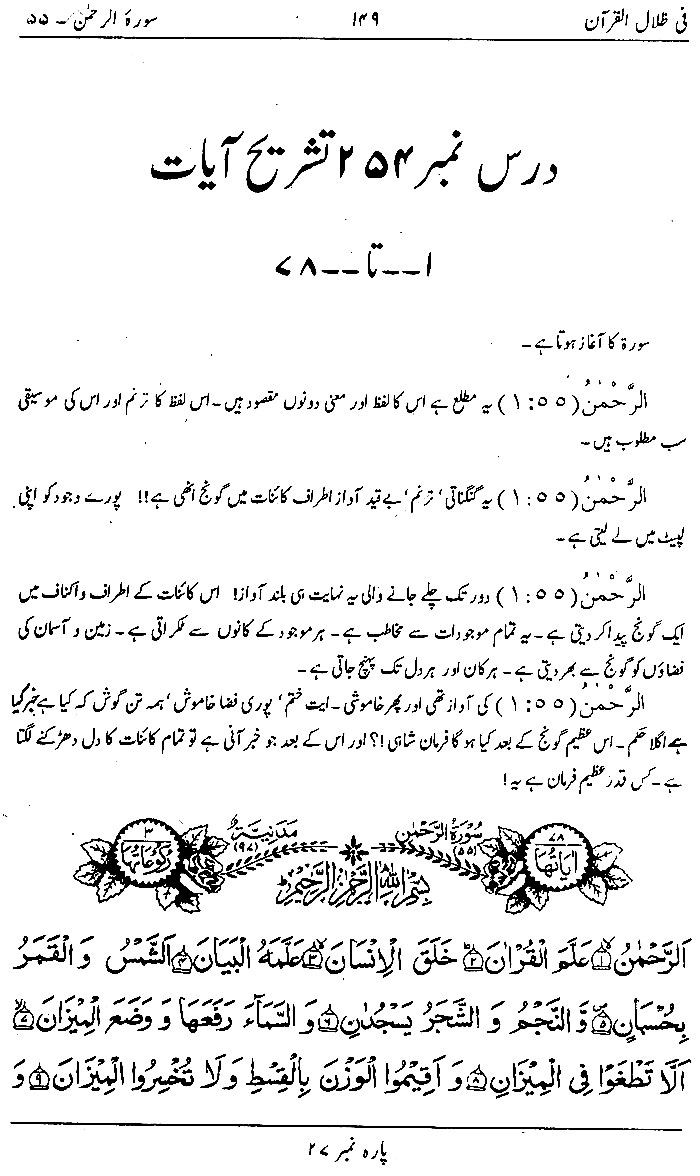 فی ظلال القرآن ۱۴۹ سورۃ الرحمٰن ـ ۵۵
درس نمبر ۲۵۴ تشریح آیات
۱ ـ ـ تا ـ ـ ۷۸
سورۃ کا آغاز ہوتا ہے ـ
الرَّحْمٰنُ (۱:۵۵) یہ مطلع ہے اس کا لفظ اور معنی دونوں مقصود ہیں ـ اس لفظ کا ترنم اور اس کی موسیقی
سب مطلوب ہیں ـ
الرَّحْمٰنُ (۱:۵۵) یہ گنگناتی‘ ترنم‘ بے قید آواز اطراف کائنات میں گونج اٹھی ہے!! پورے وجود کو اپنی
لپیٹ میں لے لیتی ہے ـ
الرَّحْمٰنُ (۱:۵۵) دور تک چلے جانے والی یہ نہایت ہی بلند آواز! اس کائنات کے اطراف و اکناف میں
ایک گونج پیدا کر دیتی ہے ـ یہ تمام موجودات سے مخاطب ہے ـ ہر موجود کے کانوں سے ٹکراتی ہے ـ زمین و آسمان کی
فضاؤں کو گونج سے بھر دیتی ہے ـ ہر کان اور ہر دل تک پہنچ جاتی ہے ـ
الرَّحْمٰنُ (۱:۵۵) کی آواز تھی اور پھر خاموشی ـ ایت ختم‘ پوری فضا خاموش‘ ہمہ تن گوش کہ کیا ہے خبر گیا
ہے اگلا حکم ـ اس عظیم گونج کے بعد کیا ہو گا فرمان شاہی !؟ اور اس کے بعد جو خبر آنی ہے تو تمام کائنات کا دل دھڑکنے لگتا
ہے ـ کس قدر عظیم فرمان ہے یہ !
۷۸ اٰیَاتُهَا سُوْرَةُ الرَّحْمٰنِ (۵۵) مَدَنِيَّةٌ (۹۷) ۳ رُكُوْعَاتُهَا
بِسْمِ اللّٰهِ الرَّحْمٰنِ الرَّحِيْمِ
اَلرَّحْمٰنُ ۱ عَلَّمَ الْقُرْاٰنَ ۲ خَلَقَ الْاِنْسَانَ ۳ عَلَّمَهُ الْبَيَانَ ۴ اَلشَّمْسُ وَ الْقَمَرُ
بِحُسْبَانٍ ۵ وَّ النَّجْمُ وَ الشَّجَرُ يَسْجُدٰنِ ۶ وَ السَّمَآءَ رَفَعَهَا وَ وَضَعَ الْمِيْزَانَ ۷
اَلَّا تَطْغَوْا فِي الْمِيْزَانِ ۸ وَ اَقِيْمُوا الْوَزْنَ بِالْقِسْطِ وَ لَا تُخْسِرُوا الْمِيْزَانَ ۹ وَ
پارہ نمبر ۲۷